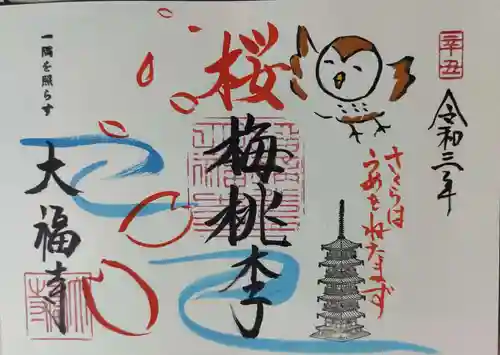 辛丑
令和三年
さくらは
うめをねたまず
桜
梅桃李
一隅を照らす
大福寺